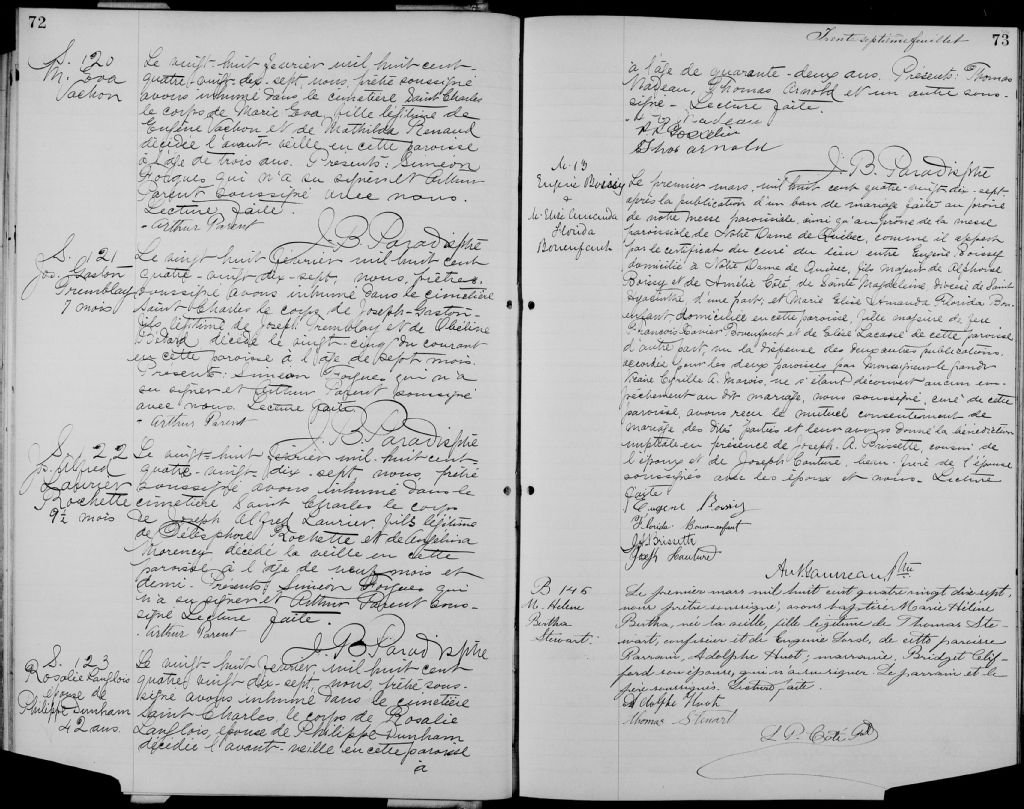 72
S. 120
M. Eva
Vachon
Le vingt-huit février mil huit cent
quatre-vingt-dix-sept, nous, prêtre soussigné
avons inhumé dans le cimetière Saint Charles
le corps de Marie Eva, fille légitime de
Eugène Vachon et de Mathilda Renaud
décédée l'avant-veille en cette paroisse
à l'âge de trois ans. Présents: Siméon
Forgues qui n'a su signer et Arthur
Parent soussigné avec nous.
Lecture faite.
- Arthur Parent
J. B. Paradis ptre
S. 121
Jos. Gaston
Tremblay
7 mois
Le vingt huit février mil huit cent
quatre-vingt-dix-sept, nous, prêtre
soussigné avons inhumé dans le cimetière
Saint Charles le corps de Joseph-Gaston-
fils légitime de Joseph Tremblay et de Obéline
Bédard décédé le vingt-cinq du courant
en cette paroisse à l'âge de sept mois.
Présents: Siméon Forgues qui n'a
su signer et Arthur Parent soussigné
avec nous. Lecture faite
- Arthur Parent
J. B. Paradis ptre
S. 122
Jos. Alfred
Laurier
Rochette
9½ mois
Le vingt-huit février mil-huit-cent-
quatre-vingt-dix-sept, nous, prêtre
soussigné avons inhumé dans le
cimetière Saint Charles le corps
de Joseph Alfred Laurier, fils légitime
de Télesphore Rochette et de Angelina
Morency décédé la veille en cette
paroisse à l'âge de neuf mois et
demi. Présents: Siméon Forgues qui
n'a su signer et Arthur Parent sous-
signé Lecture faite.
. Arthur Parent
J. B. Paradis ptre
S. 123
Rosalie Langlois
épouse de
Philippe Dunham
42 ans.
Le vingt-huit février, mil huit cent
quatre-vingt dix-sept, nous, prêtre sous-
signé avons inhumé dans le cimetière
Saint Charles, le corps de Rosalie
Langlois, épouse de Philippe Dunham
décédée l'avant-veille en cette paroisse
à
Trente septième feuillet 73
à l'âge de quarante-deux ans. Présents: Thomas
Nadeau, Thomas Arnold et un autre sous-
signé - Lecture faite.
Nadeau
Gosselin
Thos arnold
J. B. Paradis ptre
M. 13
Eugène Boissy
+
M. Elise Amanda
Florida
Bonenfant
Le premier mars, mil huit cent quatre-vingt-dix-sept
après la publication d'un ban de mariage faite au prône
de notre messe paroissiale ainsi qu'au prône de la messe
paroissiale de Notre Dame de Québec, comme il appert
par le certificat du curé du lieu entre Eugène Boissy
domicilié à Notre Dame de Québec, fils majeur de Alphonse
Boissy et de Amélie Côté, de Sainte Magdeleine diocèse de Saint
Hyacinthe, d'une part; et Marie Elise Amanda Florida Bon-
enfant domiciliée en cette paroisse, fille majeure de feu
François Xavier Bonenfant et de Elise Lacasse de cette paroisse
d'autre part, vu la dispense des deux autres publications
accordée pour les deux paroisses par Monseigneur le grand
vicaire Cyrille A. Marois, ne s'étant découvert aucun em-
pêchement au dit mariage, nous soussigné, curé de cette
paroisse, avons reçu le mutuel consentement de
mariage des dites parties et leur avons donné la bénédiction
nuptiale en présence de Joseph. A. Brissette, cousin de
l'époux et de Joseph Couture, beau-frère de l'épouse
soussignés avec les époux et nous. Lecture
faite
Eugène Boissy
Florida Bonnenfant
J. A Brissette
Joseph Couture
Ptre
B 146
M. Helene
Bertha
Stewart
Le premier mars mil huit cent quatre vingt dix sept,
nous prêtre soussigné, avons baptisé Marie Hélène
Bertha, née la veille, fille légitime de Thomas Ste-
wart, confiseur et de Eugénie Lord, de cette paroisse
Parrain, Adolphe Huot; marraine, Bridget Clif-
ford son épouse, qui n'a su signer. Le parrain et le
père soussignés. Lecture faite.
Adolphe Huot
Thomas Stewart
L. P. Côté Ptre